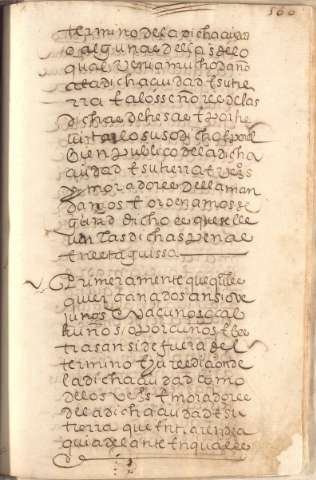 560
termino de la dicha ciudad
o algunas dellas de lo
qual venia mucho daño
a la dicha ciudad e su tie
rra e a los señores de las
dichas dehesas e por he
vitar lo suso dicho e por el
bien publico de la dicha
ciudad e su tierra e vºs
y moradores della man
damos e ordenamos se
gund dicho es que se lle
ven las dichas penas
en esta guissa
Primeramente que quales
quier ganados ansi ove
junos vacunos o cal
runos o porcunos e bes
tias ansi de fuera del
termino e juredicion de
la dicha ciudad como
de los vºs e moradores
de la dicha ciudad e su
tierra que entraren de a
qui adelante en quales